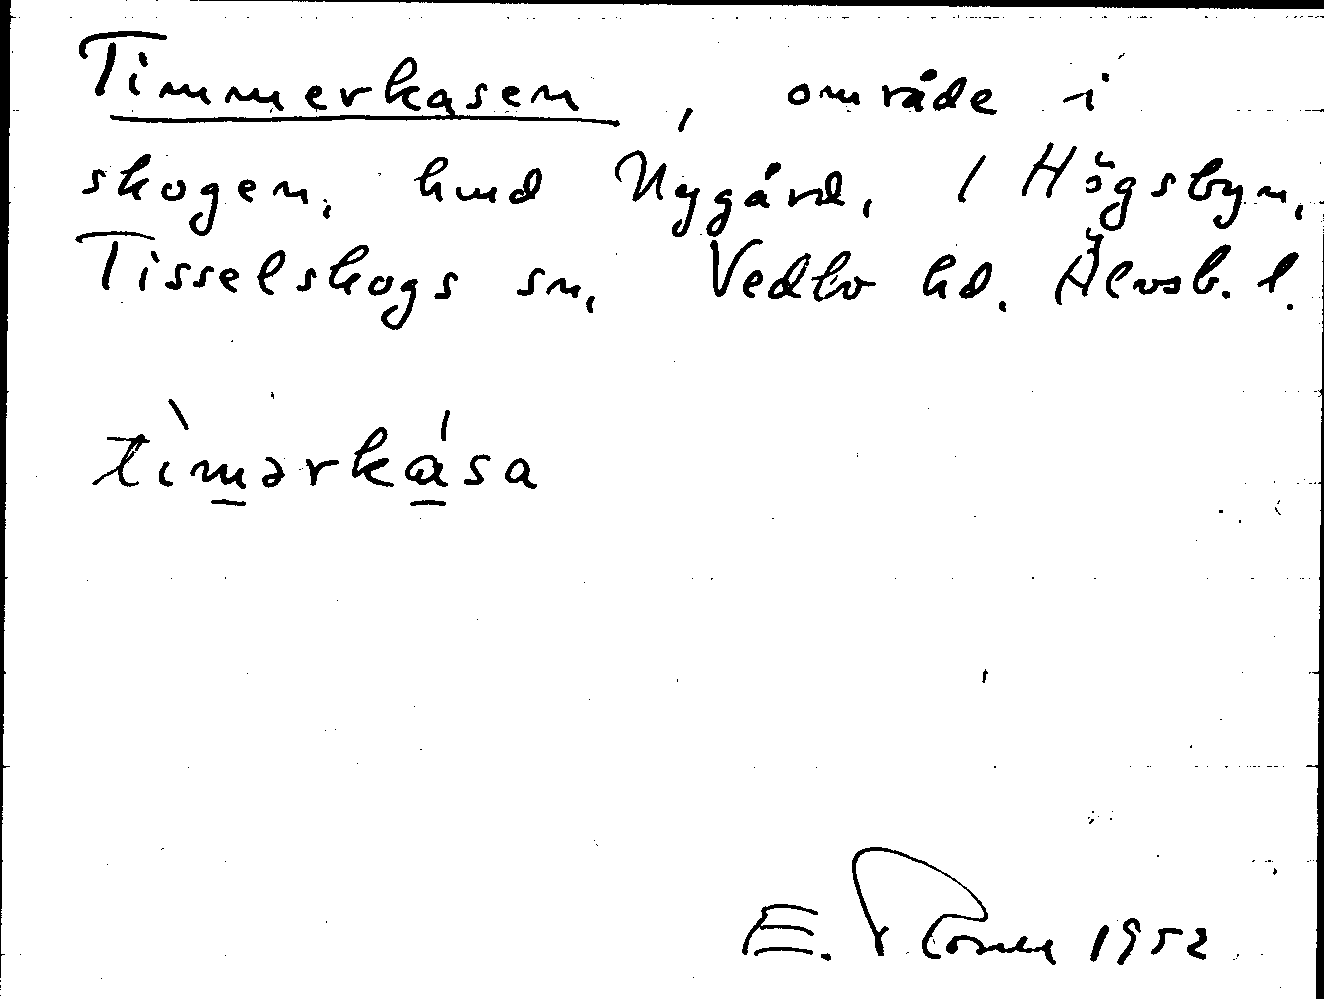 Timmerkasen, område i
skogen, hmd Nygård, / Högsbyn,
Tisselskogs sn, Vedbo hd. Älvsb. l.
tìmərkása
E. 1952